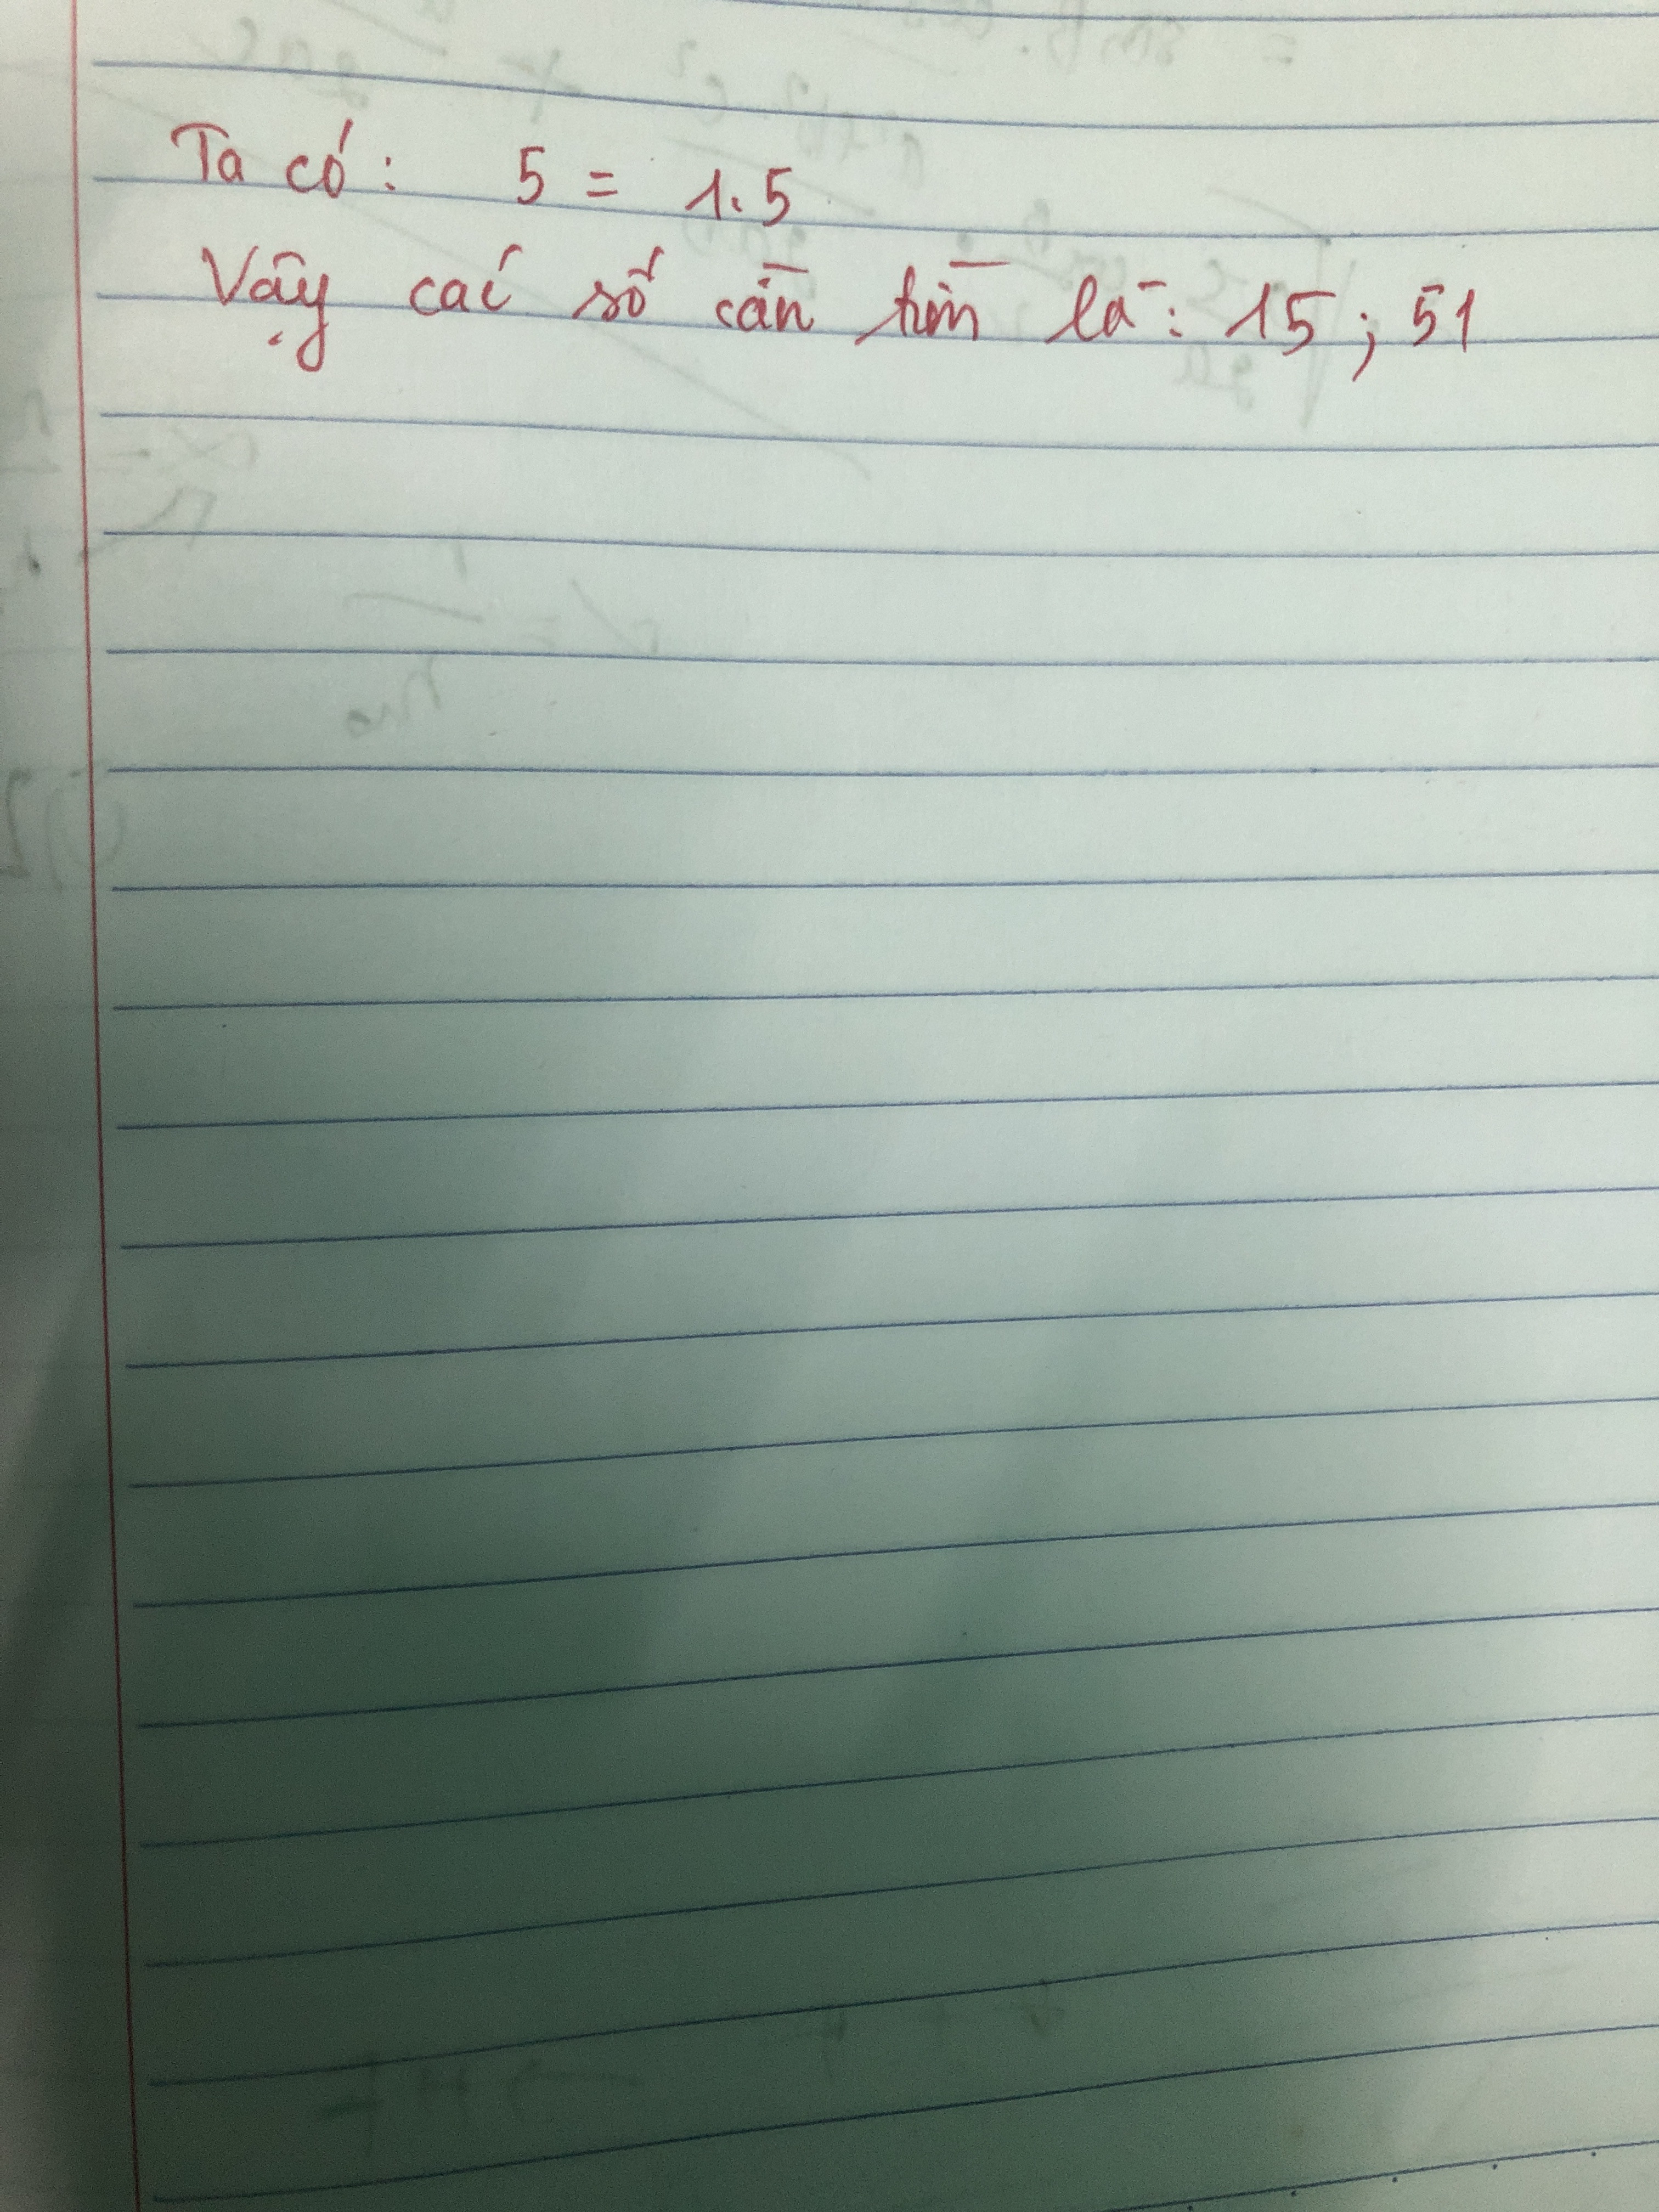 Ta có: 5 = 1.5
Vậy các số cần tìm là: 15; 51